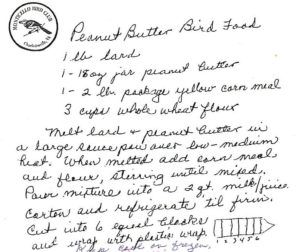 MONTICELLO BIRD CLUB
Charlottesville, VA
Peanut Butter Bird Food
1 lb. lard
1 - 18oz jar peanut butter
1 - 2 lb. package yellow corn meal
3 cups whole wheat flour
Melt lard & peanut butter in
a large saucepan over low-medium
heat. When melted add corn meal
and flour, stirring until mixed.
Pour mixture into a 2 qt. milk/juice
carton and refrigerate til firm.
Cut into 6 equal blocks
and wrap with plastic wrap.
1 2 3 4 5 6